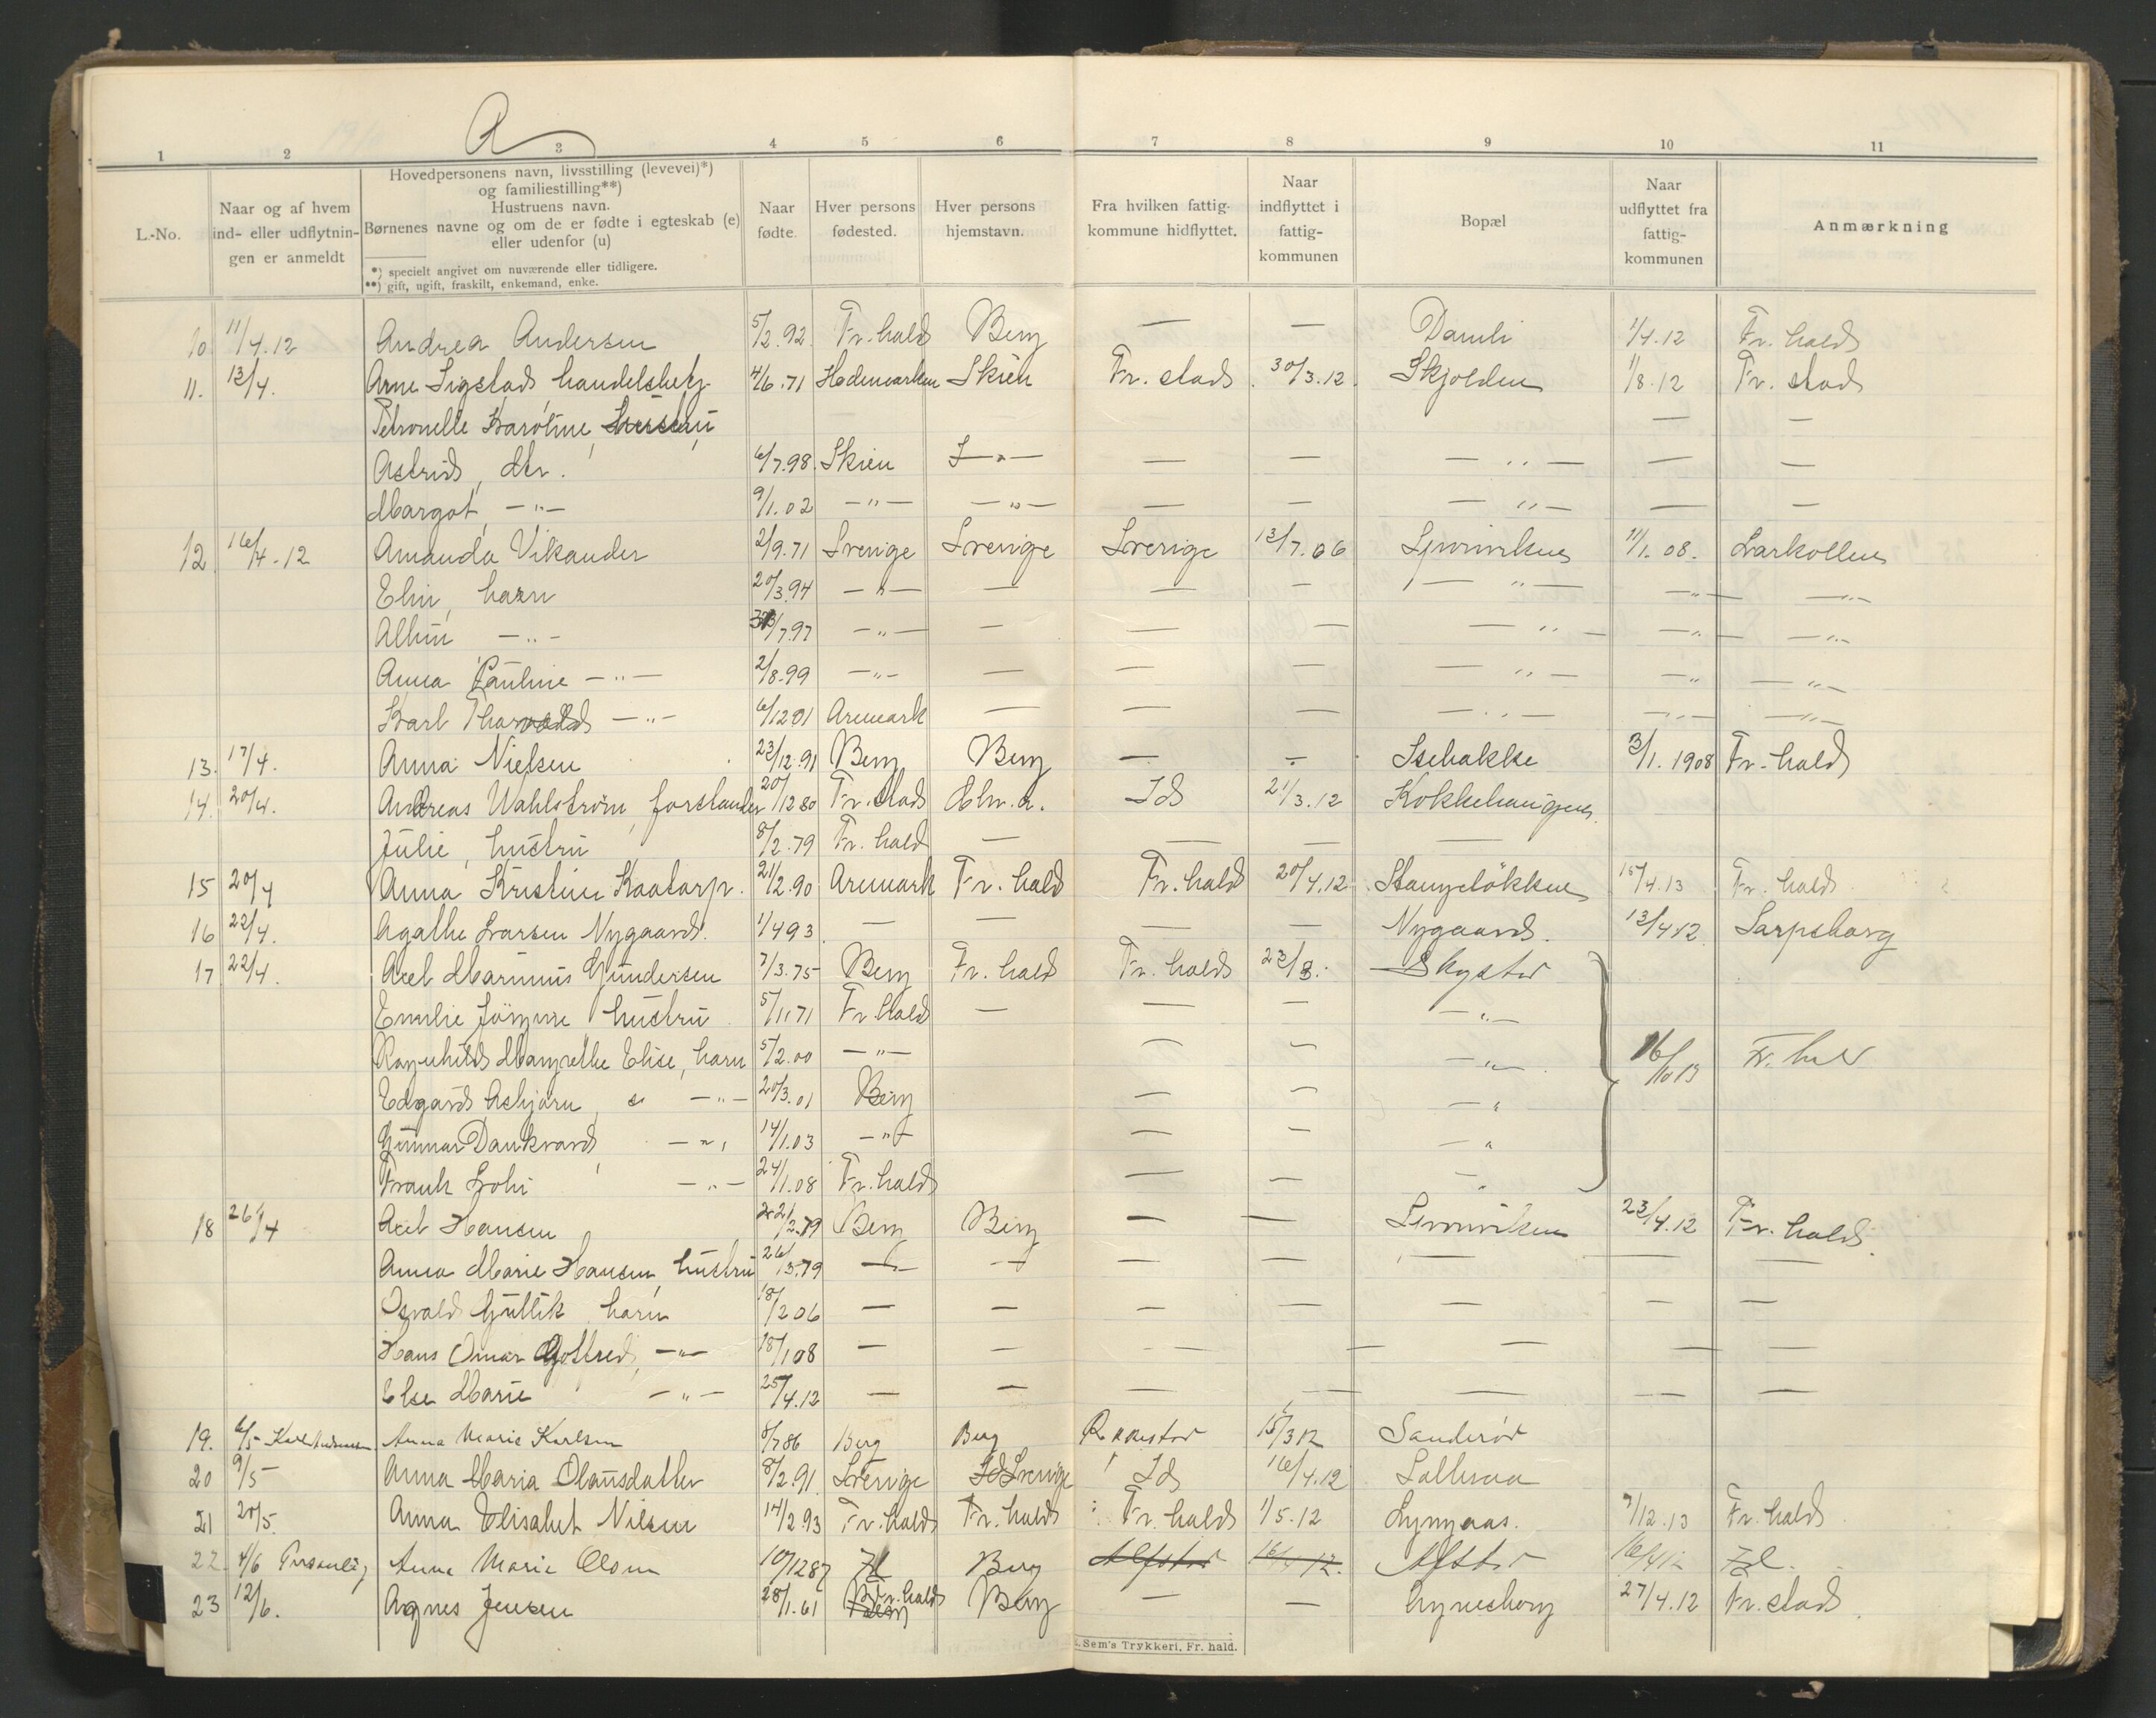 A
1 2 3 4 5 6 7 8 9 10 11
L.-No.
Naar og af hvem ind- eller udflytningen er anmeldt
Hovedpersonens navn, livsstilling (levevei)*)
og familiestilling**)
Hustruens navn.
Børnenes navne og om de er fødte i egteskab (e)
eller udenfor (u)
*) specielt angivet om nuværende eller tidligere.
**) gift, ugift, fraskilt, enkemand, enke.
Naar fødte.
Hver persons fødested.
Hver persons hjemstavn.
Fra hvilken fattigkommune hidflyttet.
Naar indflyttet i fattigkommunen
Bopæl
Naar udflyttet fra fattigkommunen
Anmærkning
10 11/4.12 Andrea Andersen 5/2.92 Fr.hald Berg — — Damli 1/4.12 Fr. hald
11. 13/4. Arne Sigstad, handelsbetj. 4/6.71 Hedemarken Skien Fr. stad 30/3.12 Skjolden 1/8.12 Fr. stad
Petronelle Karoline, hustru — — — —
Astrid, dtr. 6/7.98 Skien — " — — — — " — — —
Margot — " — 9/1.02 — " — — " — — — — " — — —
12 16/4.12 Amanda Vikander 2/9.71 Sverige Sverige Sverige 13/7.06 11/1.08. Larkollen
Elin, barn 20/3.94 — " — — — — — " — — " — — " —
Albin — " — /7.97 — " — — — — — " — — " — — " —
Anna Pauline — " — 2/8.99 — " — — — — — " — — " — — " —
Karl Thorvald — " — 6/12 01 Aremark — — — — " — — " — — " —
13. 17/4. Anna Nielsen 23/12.91 Berg Berg — — Isebakke 3/1.1908 Fr. hald
14. 20/4. Andreas Wahlstrøm, forstander 20/12 80 Fr. stad Ids 21/3.12 Kokkehaugen
Julie, hustru 8/2.79 Fr. hald — — — —
15 20/4 Anna Kristine Kaatorp. 21/2.90 Aremark Fr. hald Fr. hald 20/4.12 Stangeløkken 15/4.13 Fr. hald
16 22/4. Agathe Larsen Nygaard. 1/4 93 — — — — Nygaard. 13/4 12 Sarpsborg
17 22/4. Axel Marinius Gundersen 7/3.75 Berg Fr. hald Fr. hald 23/3. Skysted
Emilie hustru 5/1.71 Fr. hald — — — — " —
Ragnhild Margrethe Elise, barn 5/2.00 — " — — — — " — 16/10 13 Fr. hald
Edgard Asbjørn, — " — 20/3.01 Berg — — — "
Gunnar Dankvard — " — 14/1.03 — " — — — — "
Frank — " — 24/1.08 Fr. hald — — — "
18 26/4 Axel Hansen 2/2.79 Berg Berg — — 23/4.12 Fr. hald.
Anna Marie Hansen, hustru 26/5.79 — " — — — — — — —
Osvald Gullik barn 18/2 06 — — — — — — —
Hans Omar Gotfred, — " — 18/1 08 — — — — — — —
Else Marie — " — 25/4.12 — — — — — — —
19. 6/5 Karl Andersen Anna Marie Karlsen 8/7 86 Berg Berg Rakkestad 15/3 12 Sanderød
20 9/5 Anna Maria Olausdatter 8/2.91. Sverige Sverige Ids 16/4.12
21 20/5. Anna Elisabet Nilsen 14/2.93 Fr. hald Fr. hald Fr. hald 1/5.12 Lyngaas. 7/12.13 Fr. hald
22 4/6 Personlig Anna Marie Olsen 10/12 87 Id Berg 16/4 12. 16/4 12 Id.
23 12/6. Agnes Jensen 28/1.61 Fr. hald Berg — — 27/4.12 Fr. stad.
Sem's Trykkeri, Fr. hald.